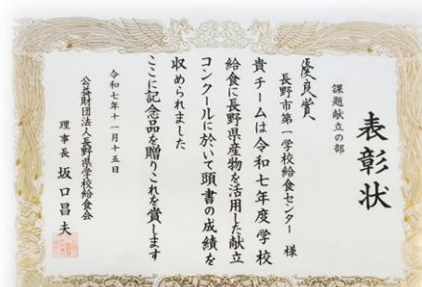 表彰状
課題献立の部
優良賞
長野市第一学校給食センター 様
貴チームは令和七年度学校
給食に長野県産物を活用した献立
コンクールに於いて頭書の成績を
収められました
ここに記念品を贈りこれを賞します
令和七年十一月十五日
公益財団法人長野県学校給食会
理事長 坂口昌夫